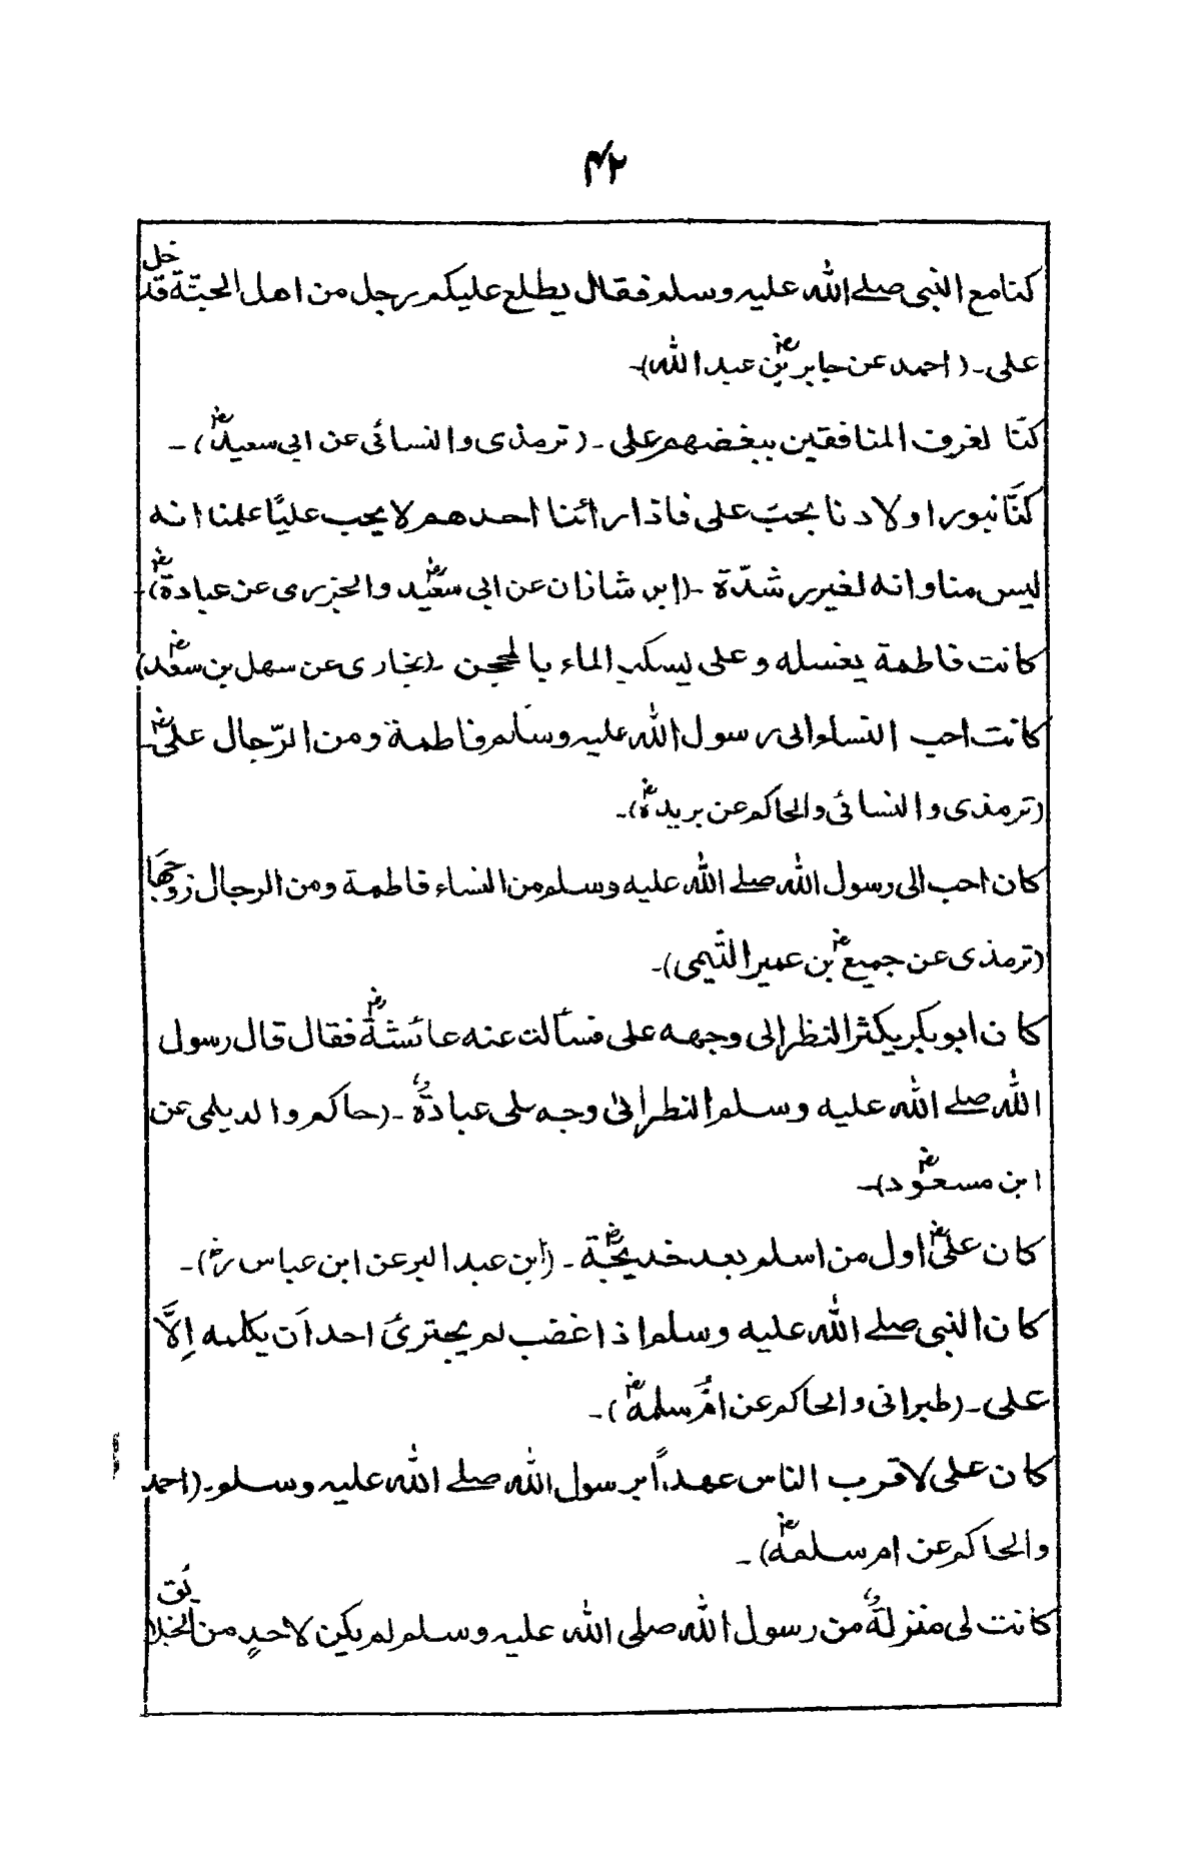 ۴۲
كنا مع النبى صلے الله عليه وسلم فقال يطلع عليكم رجل من اهل الجنّة فدخل
على ـ (احمد عن جابرؓ بن عبد الله)ـ
كنّا لغرف المنافقين ببغضهم على ـ (ترمذى والنسائى عن ابى سعيدؓ) ـ
كنَّا نبور اولادنا بحبّ على فاذا رائنا احدهم لا يحب عليًا علمنا انه
ليس منا وانه لغير رشدّة ـ (ابن شاذان عن ابى سعيدؓ والجزرى عن عبادةؓ)ـ
كانت فاطمة يغسله وعلى يسكب الماء بالمحجن ـ (بخارى عن سهل بن سعدؓ)
كانت احب النساء الى رسول الله عليه وسلم فاطمة ومن الرّجال علىؓ ـ
(ترمذى والنسائى والحاكم عن بريدةؓ)ـ
كان احب الى رسول الله صلے الله عليه وسلم من النساء فاطمة ومن الرجال زوجها
(ترمذى عن جميعؓ بن عمير التّيمى)ـ
كان ابو بكر يكثر النظر الى وجهه على فسألت عنه عائشةؓ فقال قال رسول
الله صلے الله عليه وسلم النظر الىٰ وجه على عبادةٌ ـ (حاكم والديلمى عن
ابن مسعودؓ)ـ
كان علىؓ اول من اسلم بعد خديجةؓ ـ (ابن عبد البر عن ابن عباس رضؓ)ـ
كان النبى صلے الله عليه وسلم اذا غضب لم يجترئ احد اَن يكلمه اِلاَّ
على ـ (طبرانى والحاكم عن امُّ سلمةؓ) ـ
كان على لاقرب الناس عهداً برسول الله صلے الله عليه وسلم ـ (احمد
والحاكم عن ام سلمةؓ) ـ
كانت لى منزلةٌ من رسول الله صلى الله عليه وسلم لم يكن لاحدٍ من الخلائق